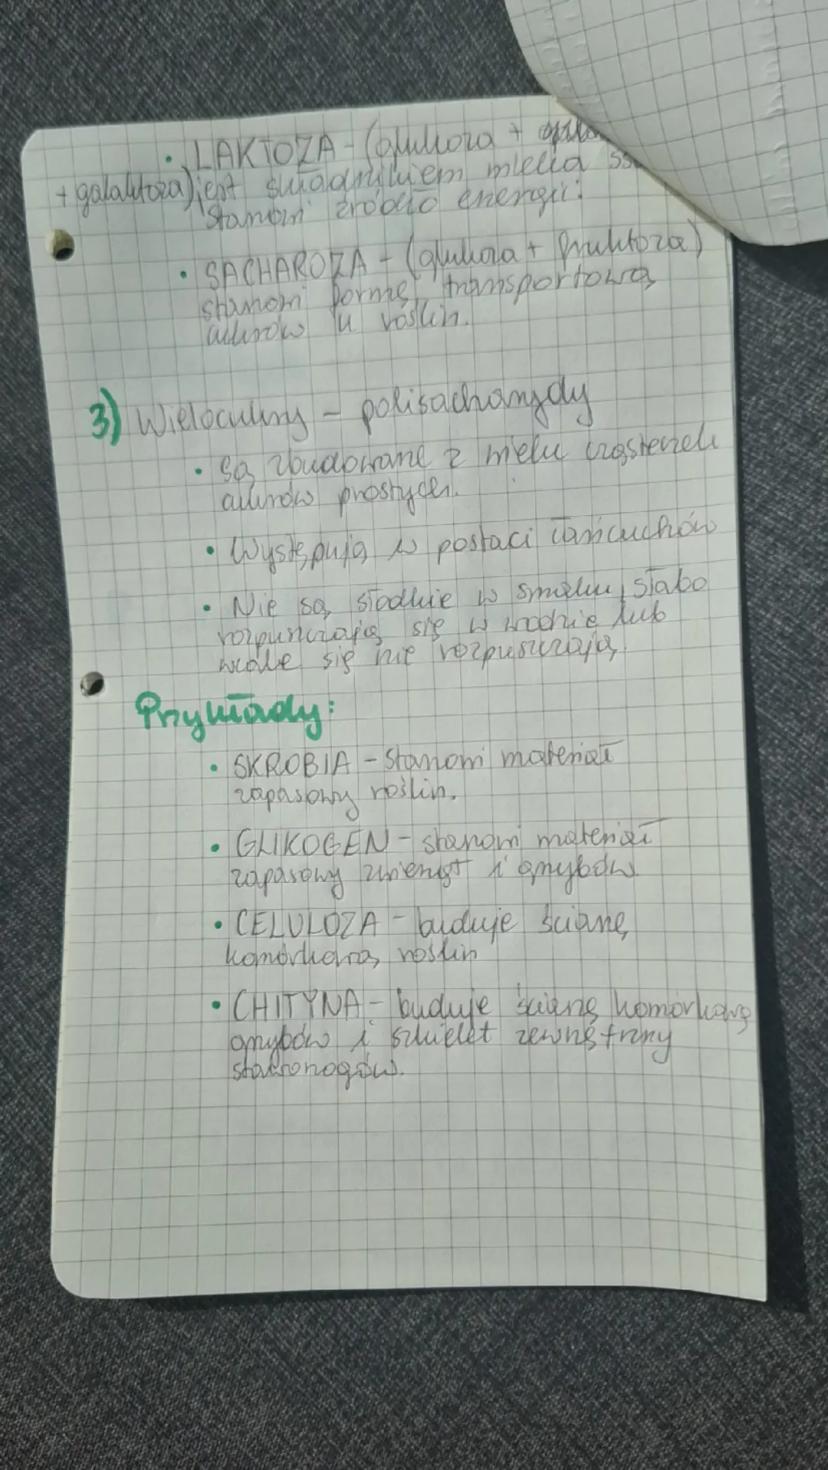 • LAKTOZA - (glukoza +
+ galaktoza) jest składnikiem mleka
stanowi źródło energii.
• SACHAROZA - (glukoza + fruktoza)
stanowi formę transportową
cukrów u roślin.
3) Wielocukry - polisacharydy
• Są zbudowane z wielu cząsteczek
cukrów prostych.
• Występują w postaci łańcuchów
• Nie są słodkie w smaku, słabo
rozpuszczają się w wodzie lub
wcale się nie rozpuszczają.
Przykłady:
• SKROBIA - stanowi materiał
zapasowy roślin.
• GLIKOGEN - stanowi materiał
zapasowy zwierząt i grzybów
• CELULOZA - buduje ścianę
komórkową roślin
• CHITYNA - buduje ścianę komórkową
grzybów i szkielet zewnętrzny
stawonogów.